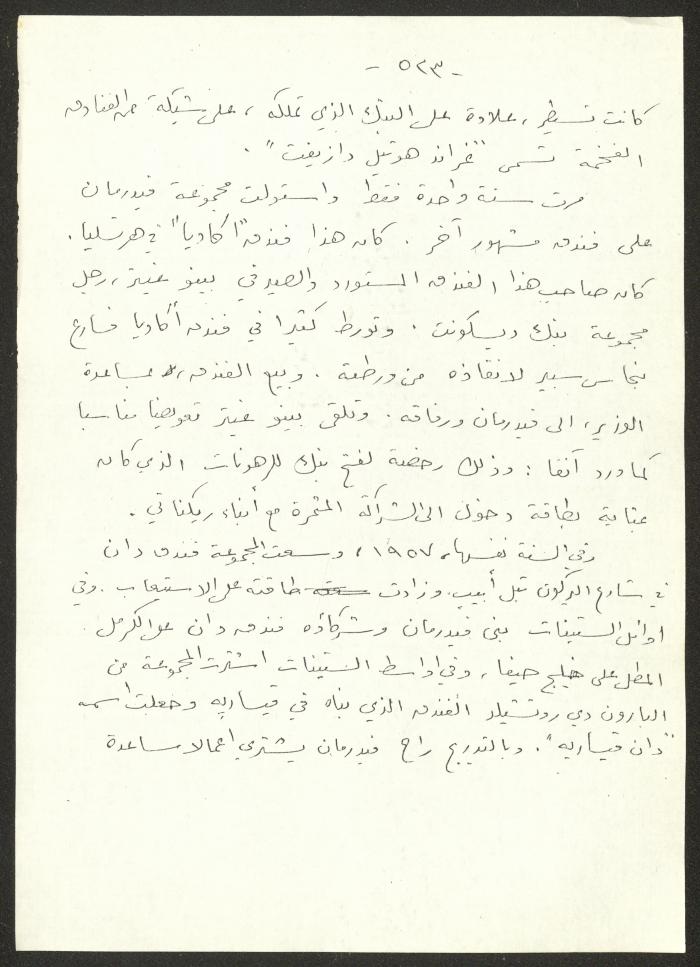 - ٥٢٣ -
كانت تسيطر، علاوة على البنك الذي تملكه، على شبكة من الفنادق
الفخمة تسمى "غراند هوتيل دازيفت".
مرت سنة واحدة فقط واستولت مجموعة فيدرمان
على فندق مشهور آخر. كان هذا فندق "اكاديا" في هرتسليا.
كان صاحب هذا الفندق المستورد والصيرفي بينو غيتر، رجل
مجموعة بنك ديسكونت. وتورط كثيرا في فندق أكاديا فسارع
بنحاس سبير لانقاذه من ورطته. وبيع الفندق، بمساعدة
الوزير، الى فيدرمان ورفاقه. وتلقى بينو غيتر تعويضا مناسبا
كما ورد آنفا: وذلك رخصة لفتح بنك للرهونات الذي كان
بمثابة بطاقة دخول الى الشراكة المثمرة مع أبناء ريكناتي.
وفي السنة نفسها، ١٩٥٧، وسعت المجموعة فندق دان
في شارع اليركون بتل أبيب وزادت طاقته على الاستيعاب. وفي
اوائل الستينات بنى فيدرمان وشركاؤه فندق دان على الكرمل
المطل على خليج حيفا، وفي اواسط الستينات اشترت المجموعة من
البارون دي روتشيلد الفندق الذي بناه في قيساريه وجعلت اسمه
"دان قيساريه". وبالتدريج راح فيدرمان يشتري اعمالا مساعدة